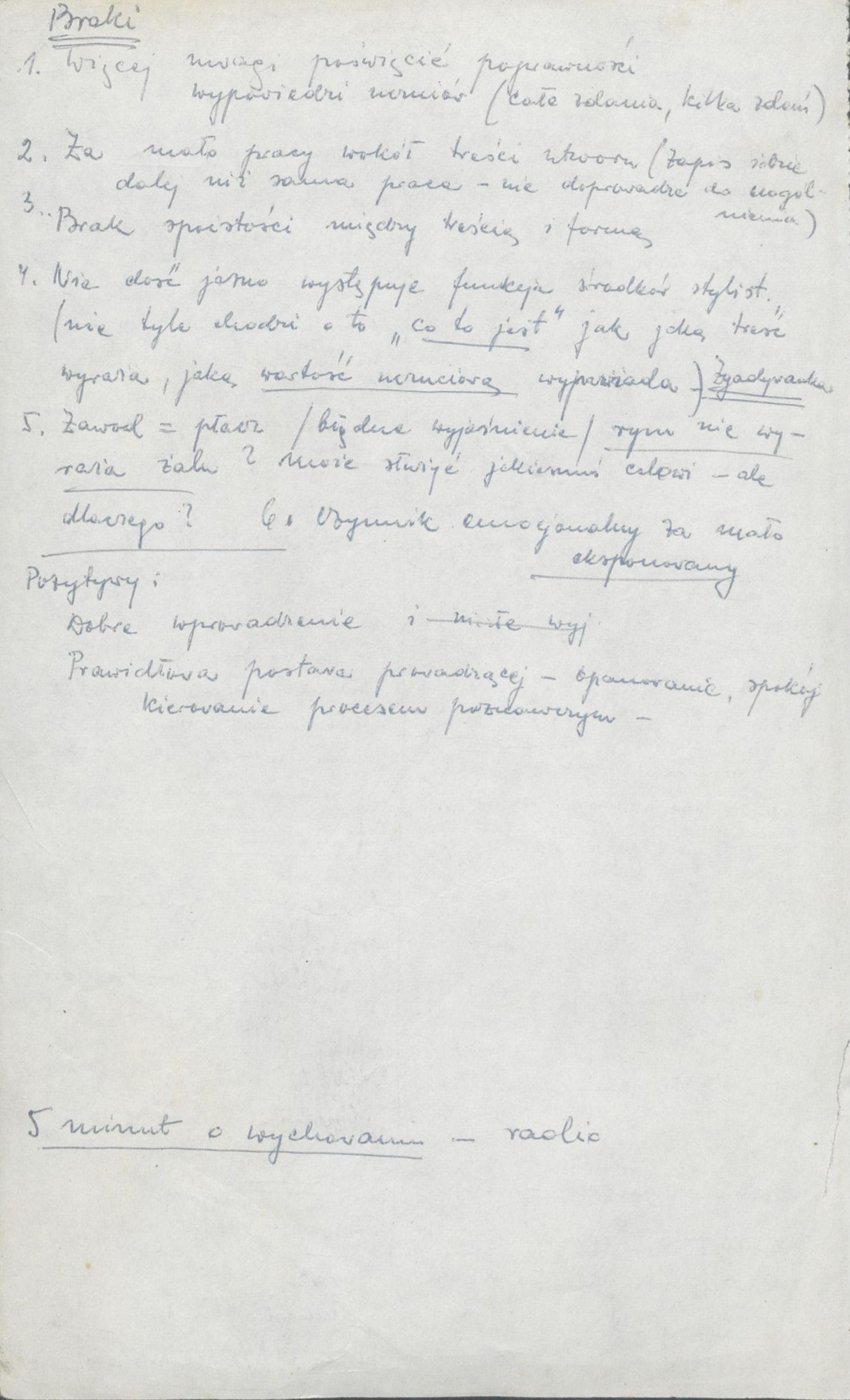 Braki
1. Więcej uwagi poświęcić poprawności
wypowiedzi uczniów (całe zdania, kilka zdań)
2. Za mało pracy wokół treści utworu (zapis
dały niż sama praca – nie doprowadza do uogól-
nienia)
3. Brak spoistości między treścią i formą
4. Nie dość jasno występuje funkcja środków stylist.
(nie tyle chodzi o to „co to jest" jak jaką treść
wyraża, jaką wartość uczuciową wypowiada) Zgadywanka
5. Zawód = płacz /błędne wyjaśnienie/ rym nie wy-
raża żalu? może służyć jakiemuś celowi – ale
dlaczego? 6. Czynnik emocjonalny za mało
eksponowany
Pozytywy:
Dobre wprowadzenie i miłe wyj
Prawidłowa postawa prowadzącej – opanowanie, spokój
kierowanie procesem poznawczym –
5 minut o wychowaniu – radio